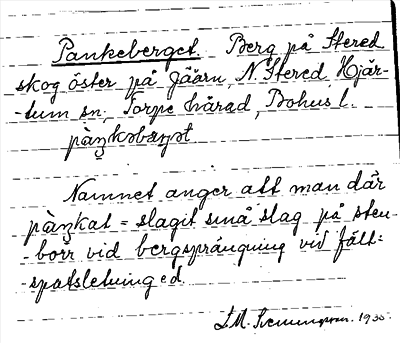 Pankeberget. Berg på Stered
skog öster på Jäärn, N. Stered Hjär-
tum sn, Torpe härad, Bohus l.
Namnet anger att man där
pàŋkat = slagit små slag på sten-
-borr vid bergsprängning vid fält-
-spatsletning ed.
1930.